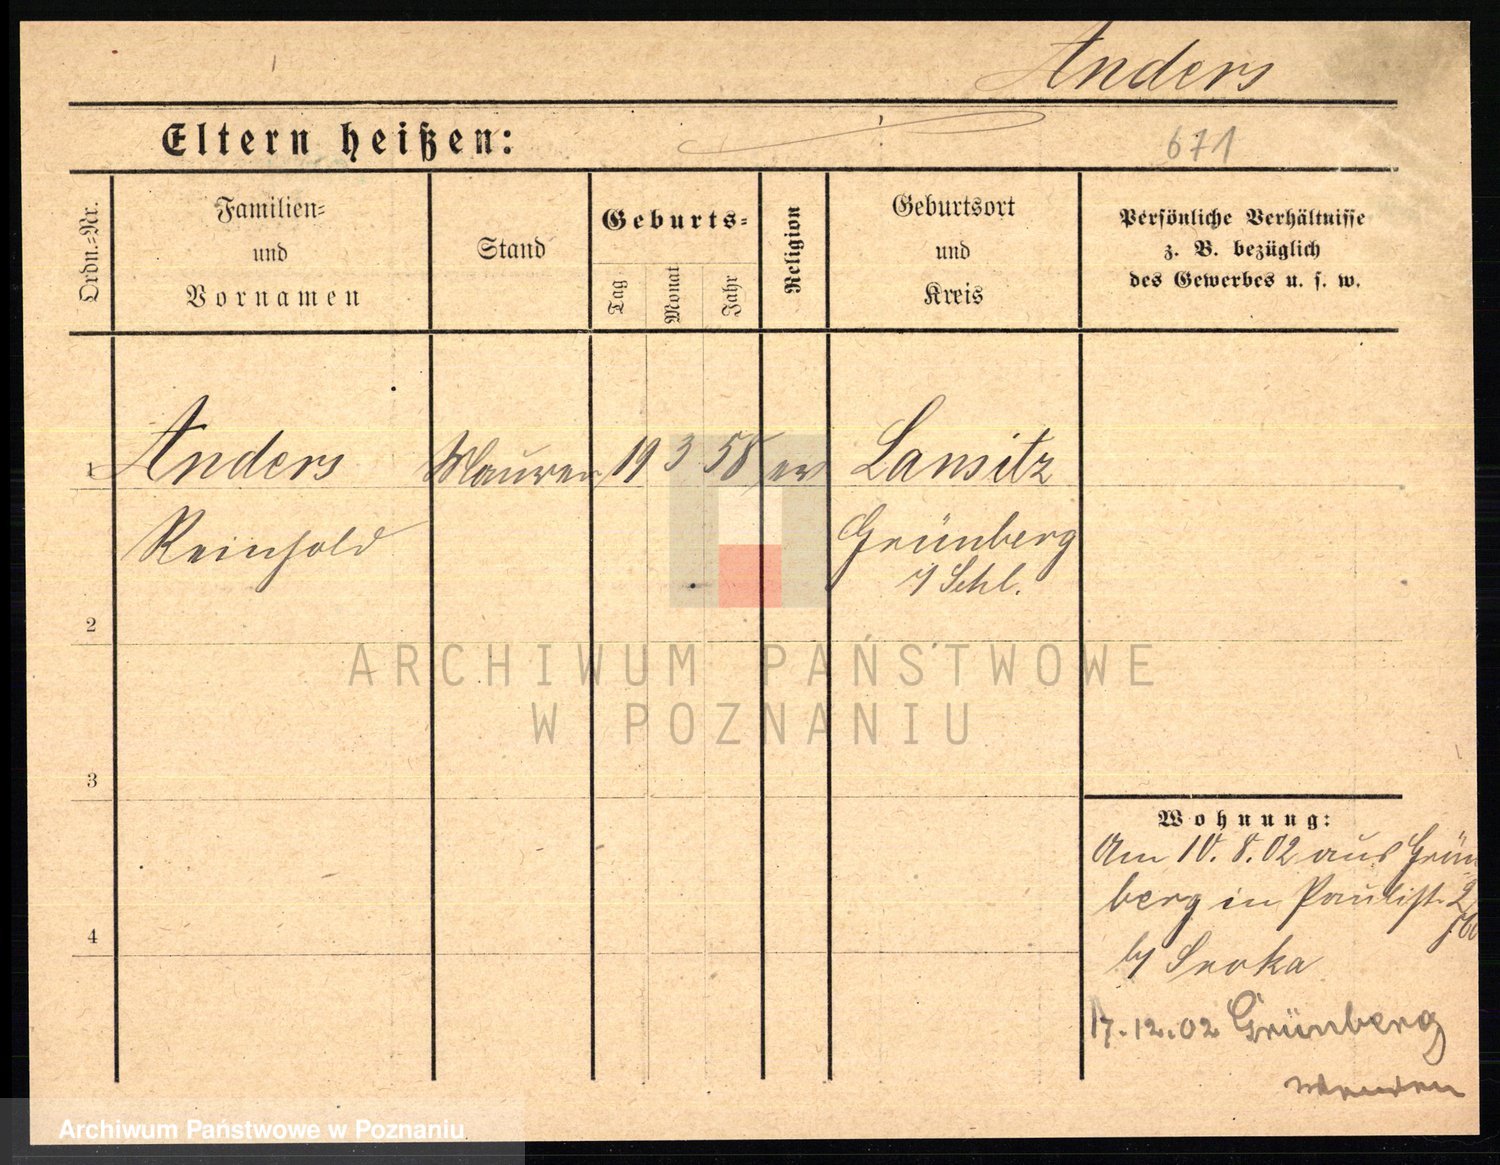 Anders
Eltern heißen:
671
Ordn.=Nr.
Familien=
und
Vornamen
Stand
Geburts=
Tag
Monat
Jahr
Religion
Geburtsort
und
Kreis
Persönliche Verhältnisse
z. B. bezüglich
des Gewerbes u. s. w.
1 Anders Maurer 19 3 58 ev Lansitz
Reinhold Grünberg
i/ Schl.
2
ARCHIWUM PAŃSTWOWE
W POZNANIU
3
Wohnung:
Am 10. 8. 02 aus Grün
berg in Paulist. 2
b/ Sroka
4
17.12.02 Grünberg
Archiwum Państwowe w Poznaniu